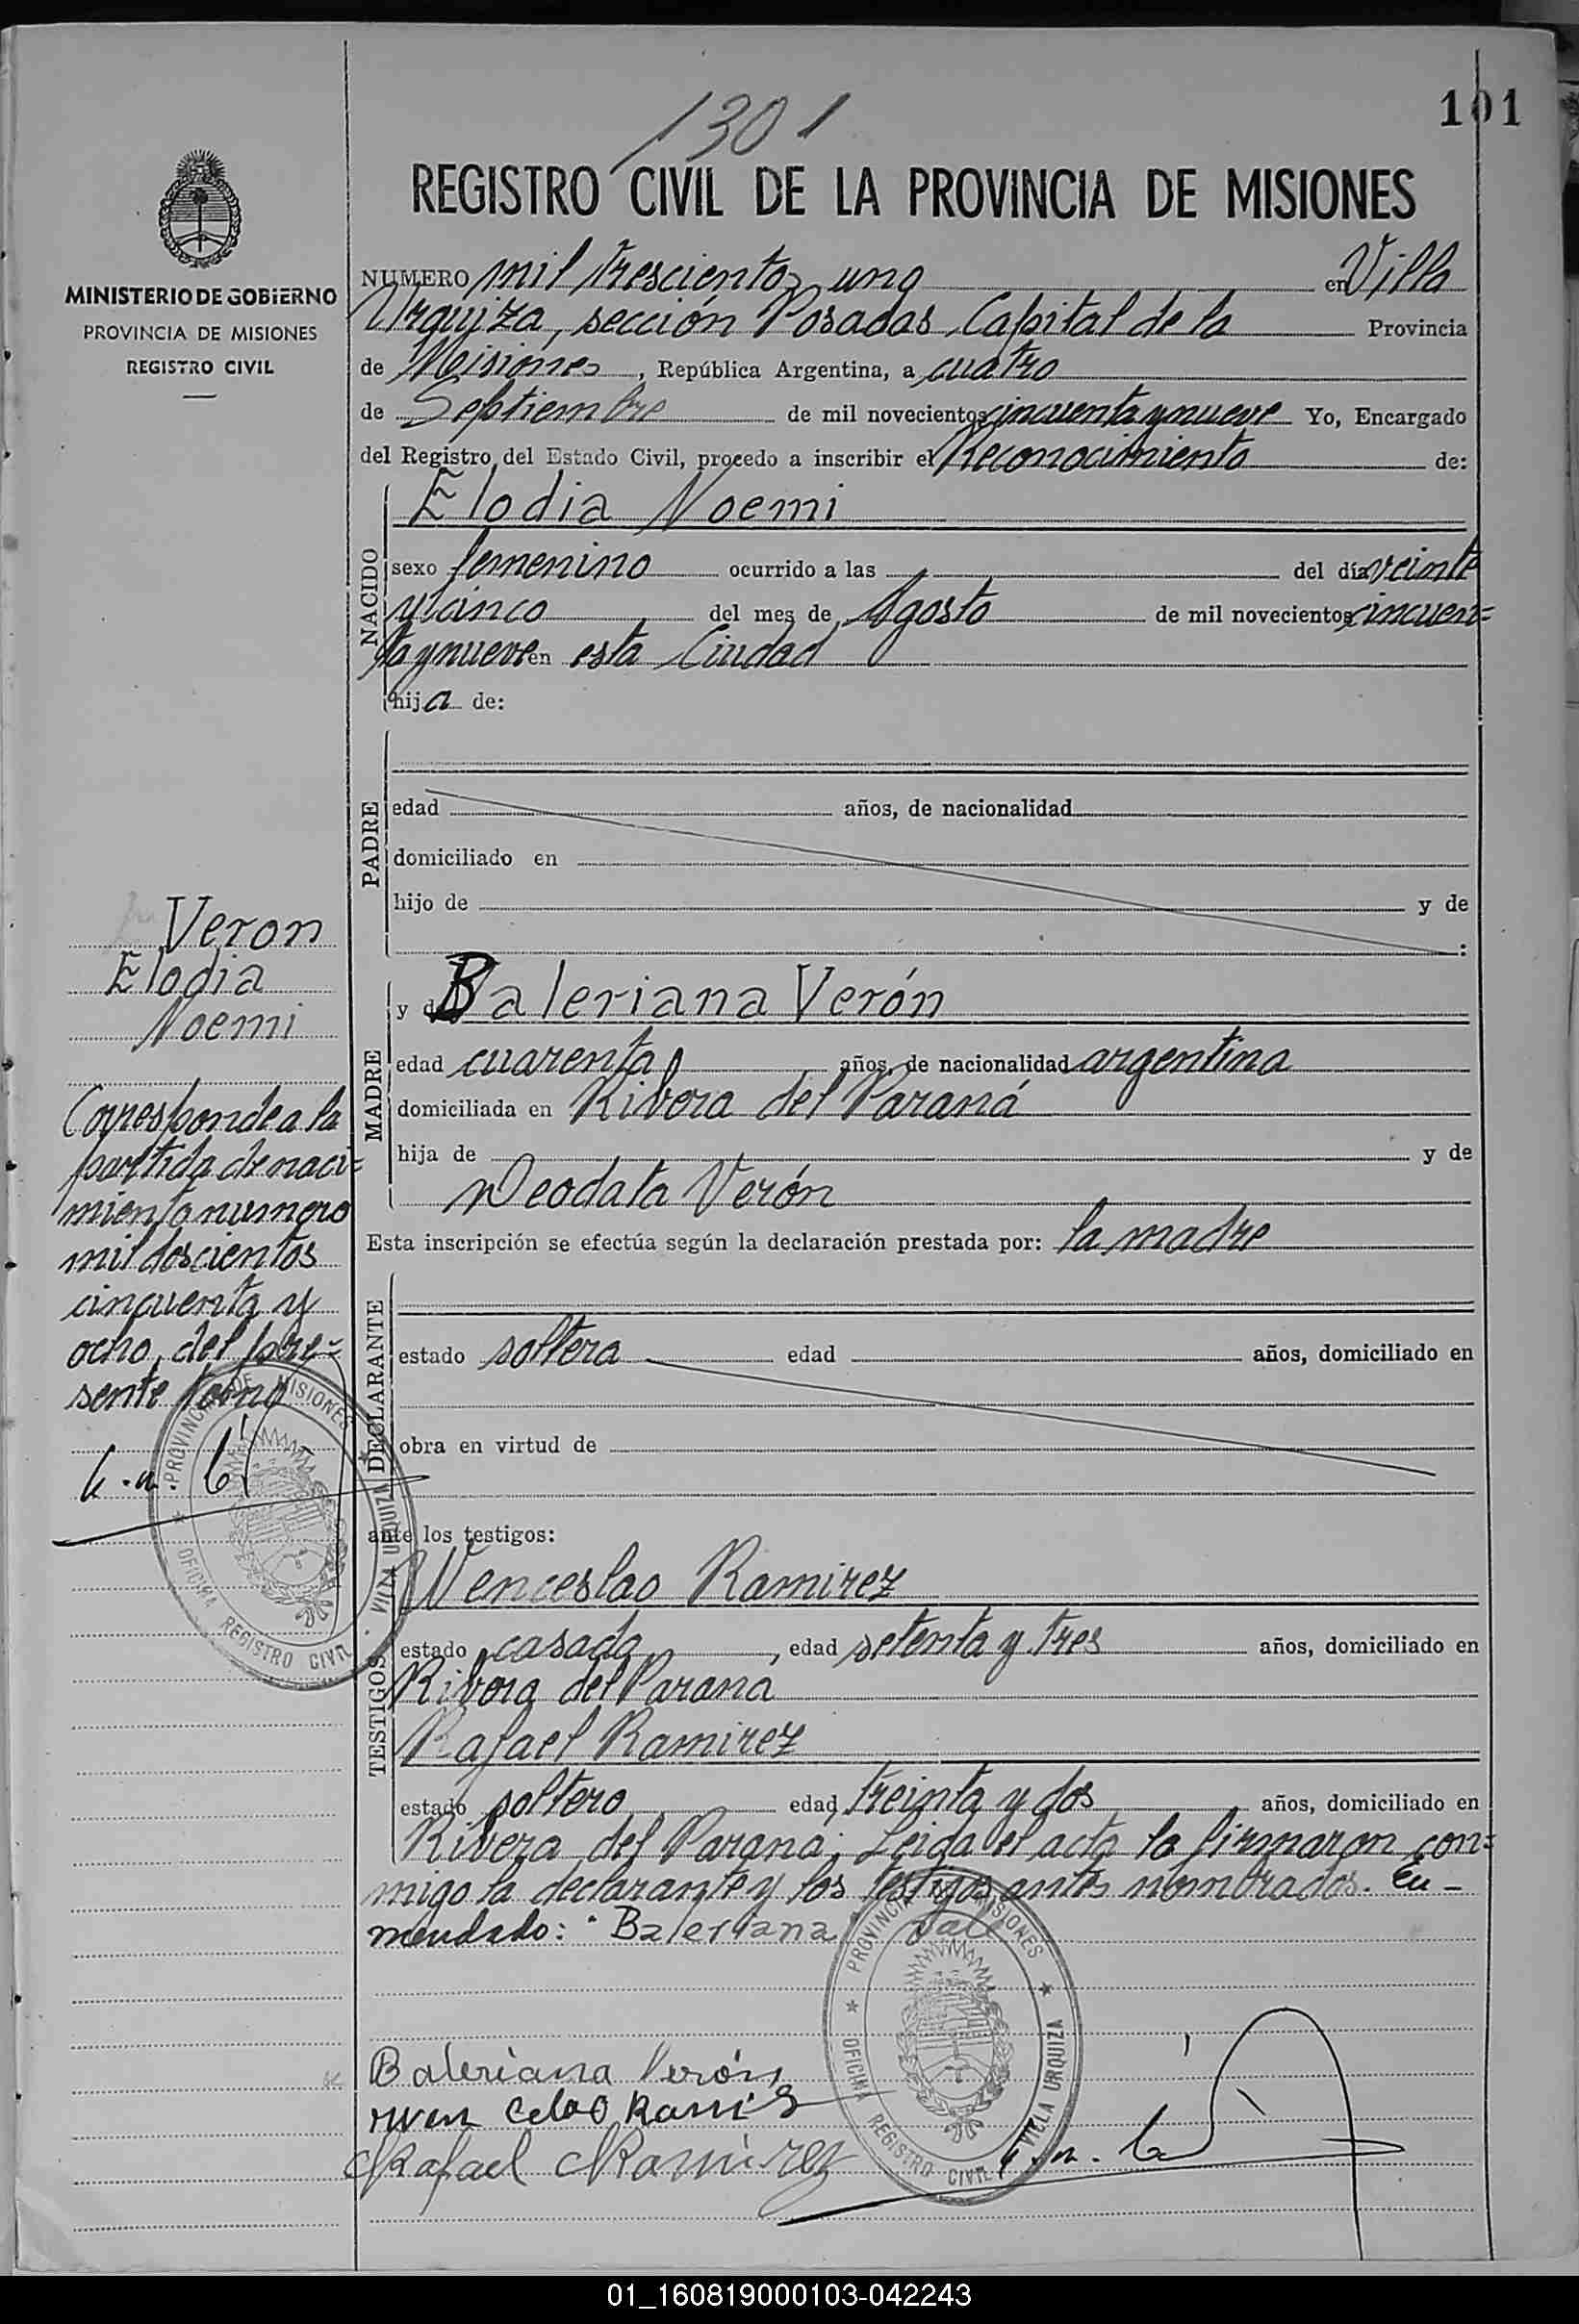 101
1301
REGISTRO CIVIL DE LA PROVINCIA DE MISIONES
MINISTERIO DE GOBIERNO
PROVINCIA DE MISIONES
REGISTRO CIVIL
NUMERO mil trescientos uno en Villa
Urquiza, sección Posadas, Capital de la Provincia
de Misiones, República Argentina, a cuatro
de Septiembre de mil novecientos cincuenta y nueve Yo, Encargado
del Registro del Estado Civil, procedo a inscribir el Reconocimiento de:
NACIDO
Elodia Noemi
sexo femenino ocurrido a las del día veinte
y cinco del mes de Agosto de mil novecientos cincuen=
ta y nueve en esta Ciudad
hija de:
PADRE
edad años, de nacionalidad
domiciliado en
hijo de y de
:
MADRE
y de Baleriana Verón
edad cuarenta años, de nacionalidad argentina
domiciliada en Rivera del Paraná
hija de y de
Deodata Verón
Esta inscripción se efectúa según la declaración prestada por: la madre
DECLARANTE
estado soltera edad años, domiciliado en
obra en virtud de
ante los testigos:
TESTIGOS
Wenceslao Ramirez
estado casado, edad setenta y tres años, domiciliado en
Rivera del Paraná
Rafael Ramirez
estado soltero edad treinta y dos años, domiciliado en
Rivera del Paraná; Leida el acta la firmaron con=
migo la declarante y los testigos antes nombrados. En-
mendado: "Baleriana" Vale
Baleriana Verón
Rafael Ramirez
Veron
Elodia
Noemi
Corresponde a la
partida de naci=
miento numero
mil doscientos
cincuenta y
ocho, del pre=
sente tomo
PROVINCIA DE MISIONES
OFICINA REGISTRO CIVIL · VILLA URQUIZA
PROVINCIA DE MISIONES
OFICINA REGISTRO CIVIL · VILLA URQUIZA
01_160819000103-042243